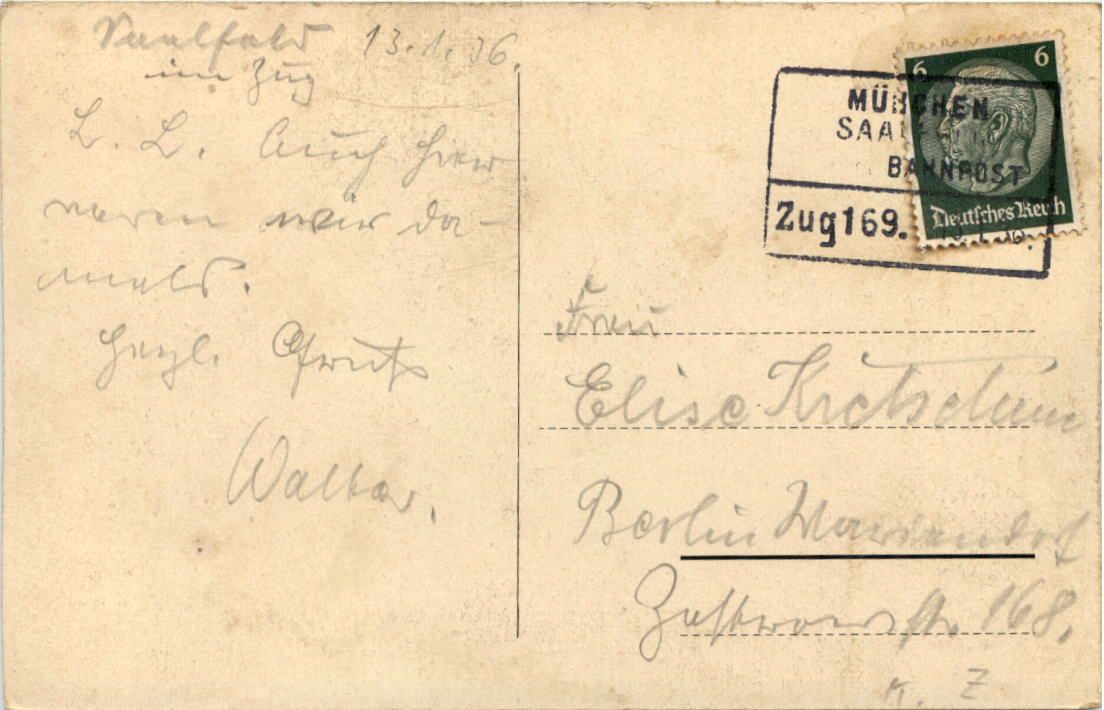 Saalfeld 13.1.36.
im Zug
L. L. Auch hier
waren wir da-
mals.
Herzl. Gruß
Walter.
6 6
MÜNCHEN
SAAL
BAHNPOST
Zug 169.
Deutsches Reich
Frau
Elise
Berlin Mariendorf
str. 168.
K. Z